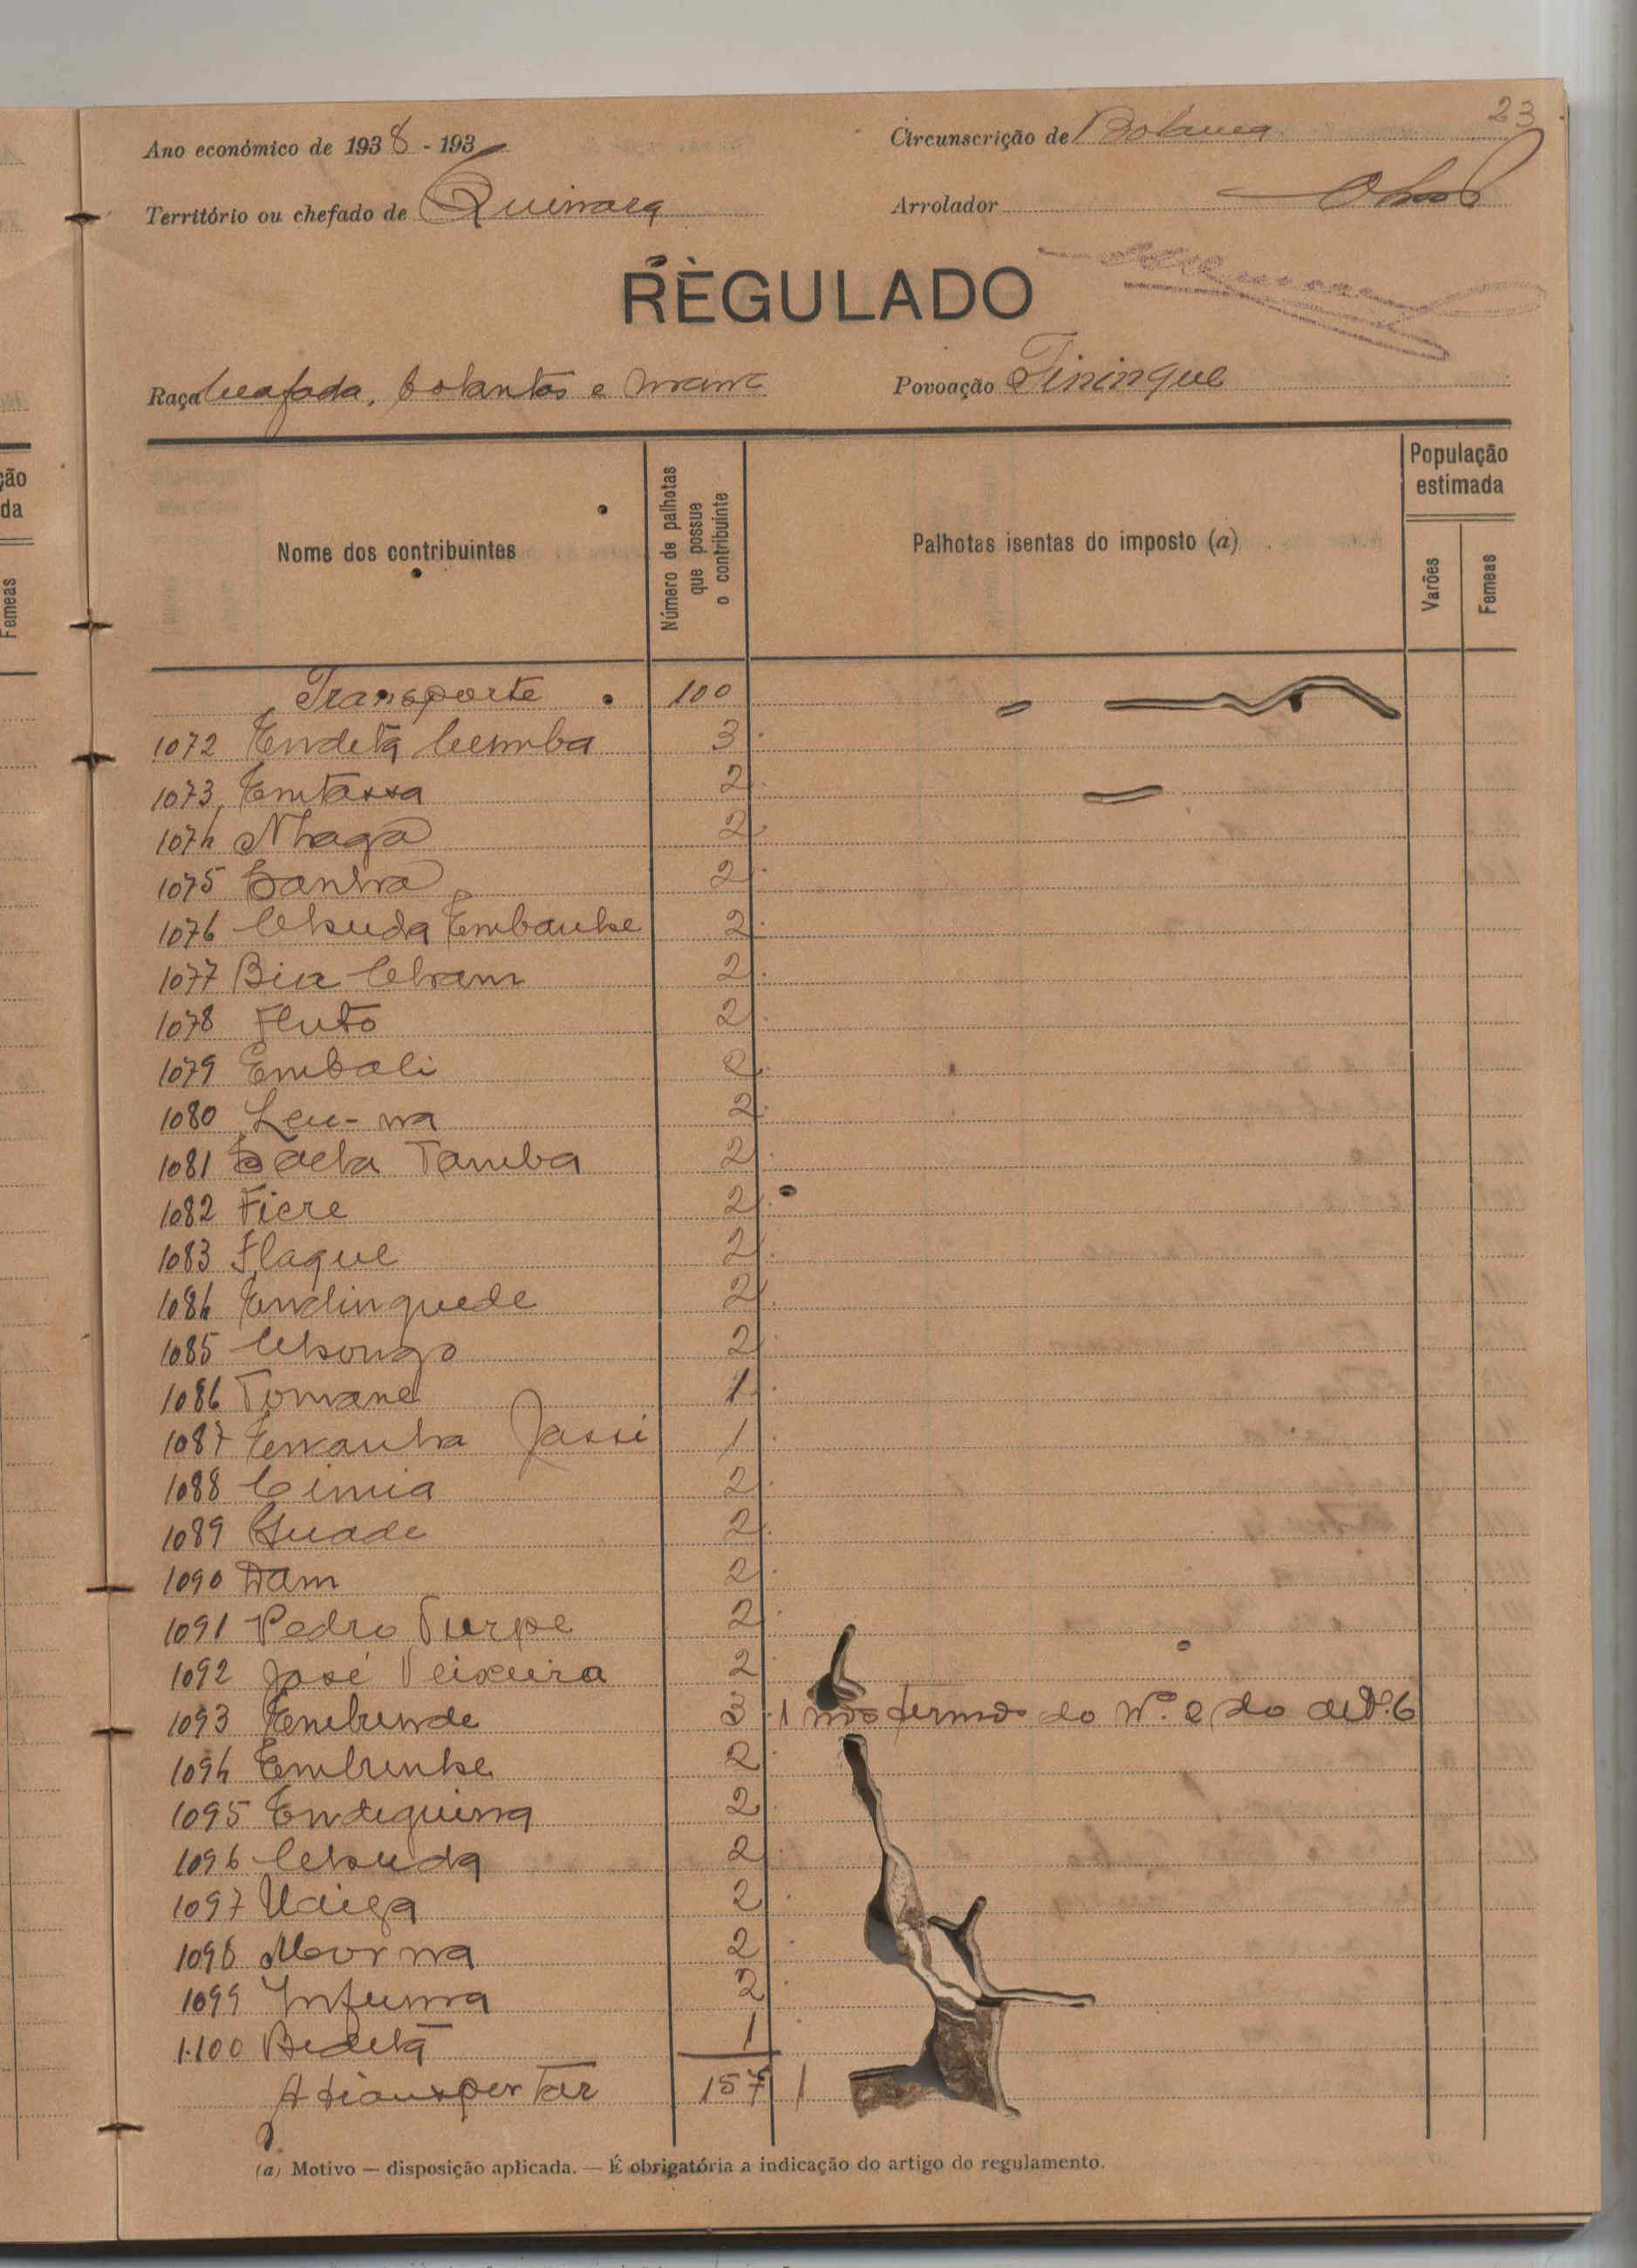 23
Ano económico de 1938 - 193
Circunscrição de Bolama
Território ou chefado de Quinara
Arrolador
RÈGULADO
Raça beafada, balantas e
Povoação Tininque
Nome dos contribuintes
Número de palhotas
que possue
o contribuinte
Palhotas isentas do imposto (a)
População
estimada
Varões
Femeas
ção
da
Femeas
Transporte 100
1072 Endetá Cumba 3
1073 Entassa 2
1074 Nhaga 2
1075 Sanha 2
1076 Chuda Embanhe 2
1077 Bia Cham 2
1078 Fluto 2
1079 Embali 2
1080 Leu-na 2
1081 Tamba 2
1082 Fiere 2
1083 Flaque 2
1084 Endinquede 2
1085 Chongo 2
1086 Tomane 1
1087 Encanha Jassi 1
1088 Cimia 2
1089 Guade 2
1090 Dam 2
1091 Pedro Turpe 2
1092 José Teixeira 2
1093 Embunde 3 1 nos termos do Nº. 2 do artº. 6
1094 Embunhe 2
1095 Endequina 2
1096 Chuda 2
1097 Uaiga 2
1098 Morna 2
1099 Infunna 2
1.100 Bedetá 1
A transportar 157 1
(a) Motivo — disposição aplicada. — É obrigatória a indicação do artigo do regulamento.